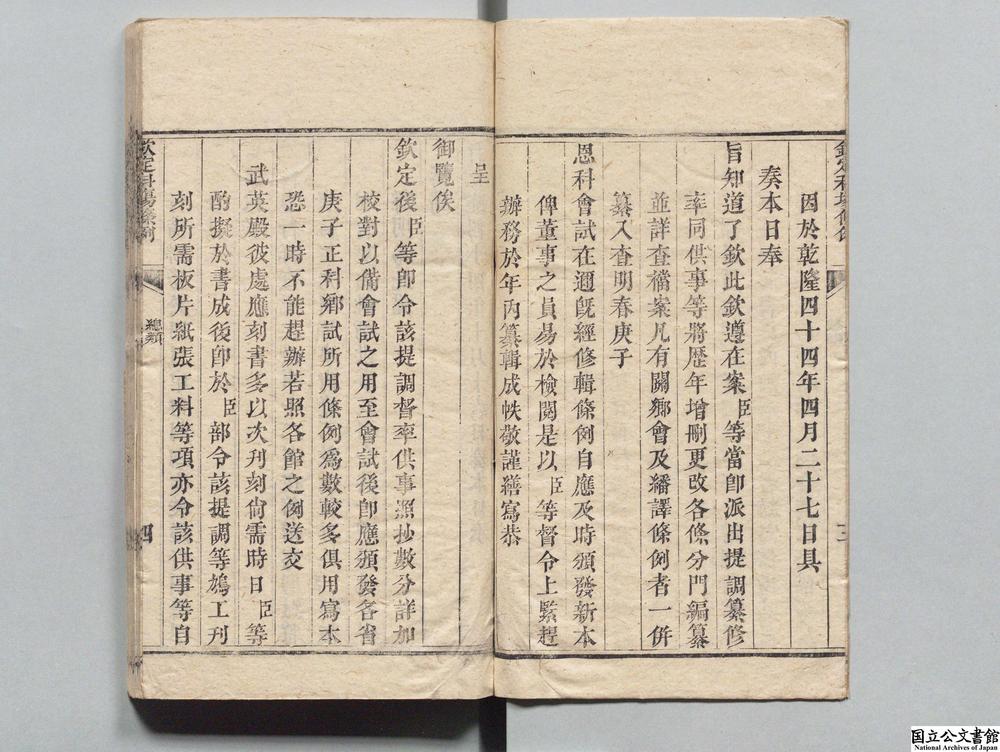 欽定科場條例
三
因於乾隆四十四年四月二十七日具
奏本日奉
旨知道了欽此欽遵在案臣等當卽派出提調纂修
率同供事等將歷年增刪更改各條分門編纂
並詳查檔案凡有關鄉會及繙譯條例者一併
纂入查明春庚子
恩科會試在邇旣經修輯條例自應及時頒發新本
俾董事之員易於檢閱是以臣等督令上緊趕
辦務於年內纂輯成帙敬謹繕寫恭
呈
御覽俟
欽定後臣等卽令該提調督率供事照抄數分詳加
校對以備會試之用至會試後卽應頒發各省
庚子正科鄉試所用條例爲數較多俱用寫本
恐一時不能趕辦若照各館之例送交
武英殿彼處應刻書多以次刋刻尙需時日臣等
酌擬於書成後卽於臣部令該提調等鳩工刋
刻所需板片紙張工料等項亦令該供事等自
欽定科場條例
總類
四
国立公文書館
National Archives of Japan